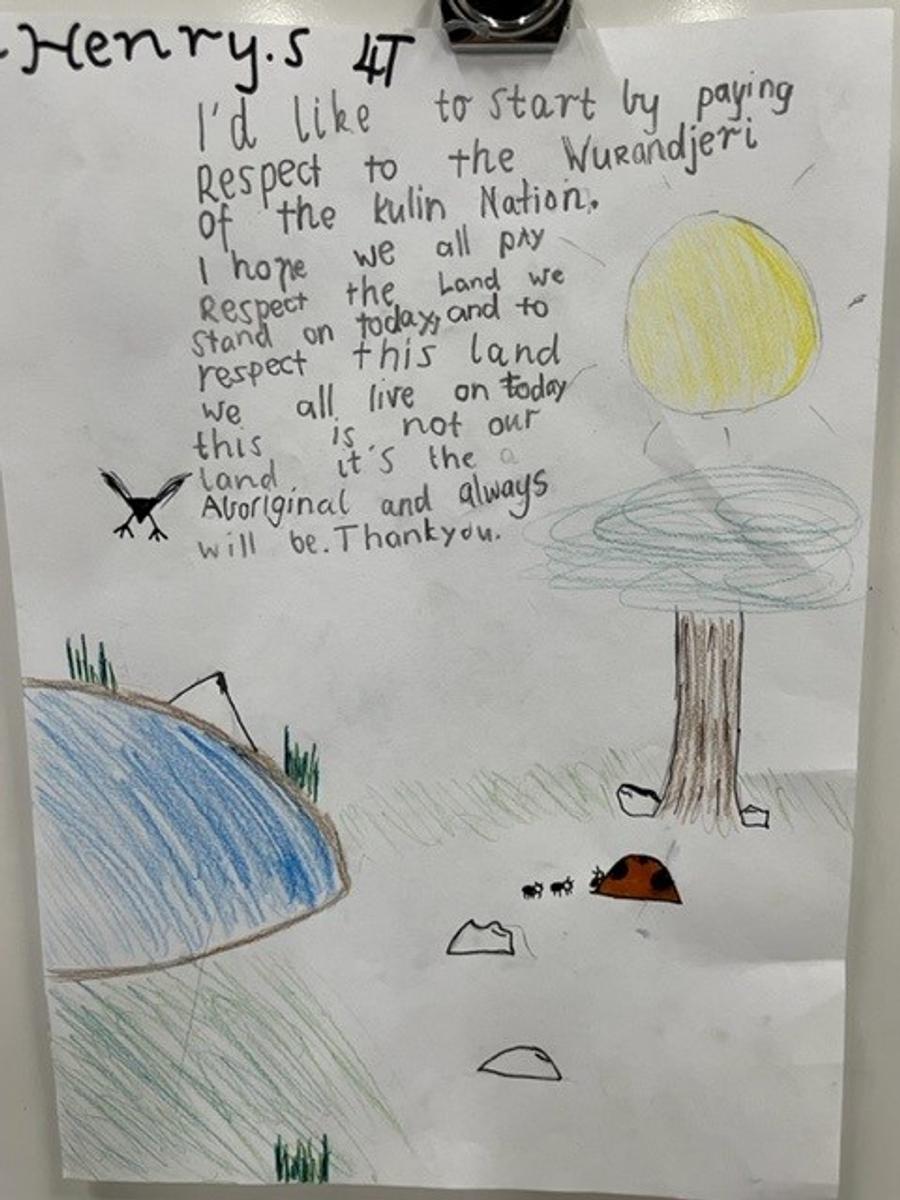 Henry.s 4T
I'd like to start by paying
Respect to the Wurandjeri
of the kulin Nation.
I hope we all pay
Respect the Land we
stand on today, and to
respect this land
we all live on today
this is not our
land it's the a
Aboriginal and always
will be. Thankyou.